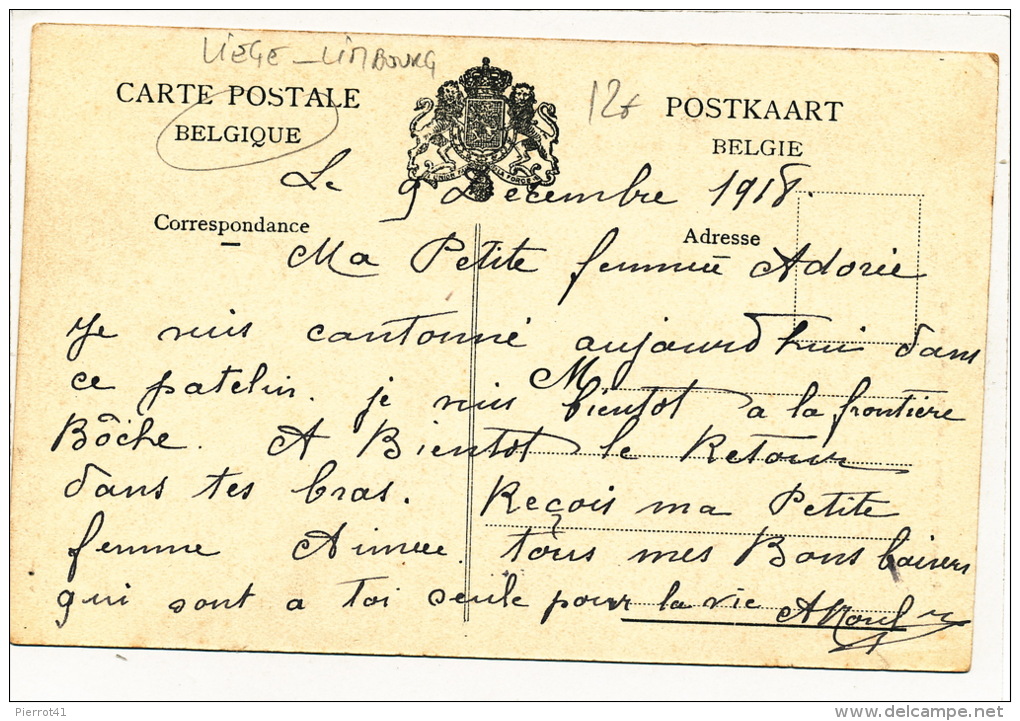 LIEGE - LIMBOURG
CARTE POSTALE
BELGIQUE
12€
POSTKAART
BELGIE
L'UNION FAIT LA FORCE
Le 9 Décembre 1918.
Correspondance
Adresse
Ma Petite femmée Adorée
Je suis cantonné aujourd'hui dans
M
ce patelin. je suis bientot a la frontière
Bôche. A Bientot le Retour
dans tes bras. Reçois ma Petite
femme Aimée tous mes Bons baisers
qui sont a toi seule pour la vie
Pierrot41
www.delcampe.net